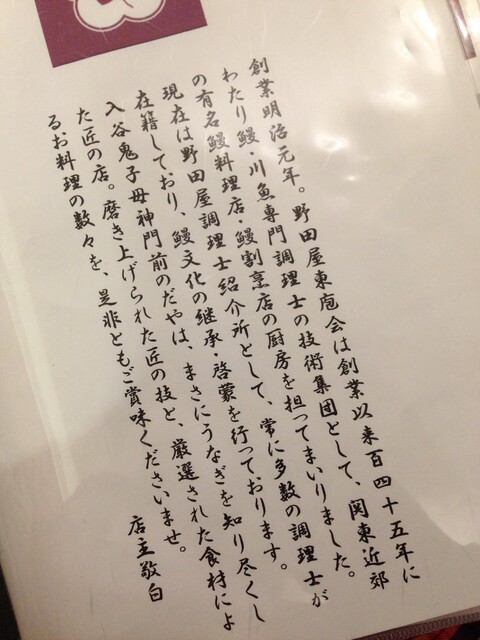 創業明治元年。野田屋東庖会は創業以来百四十五年に
わたり鰻・川魚専門調理士の技術集団として、関東近郊
の有名鰻料理店・鰻割烹店の厨房を担ってまいりました。
現在は野田屋調理士紹介所として、常に多数の調理士が
在籍しており、鰻文化の継承・啓蒙を行っております。
入谷鬼子母神門前のだやは、まさにうなぎを知り尽くし
た匠の店。磨き上げられた匠の技と、厳選された食材によ
るお料理の数々を、是非ともご賞味くださいませ。
店主敬白